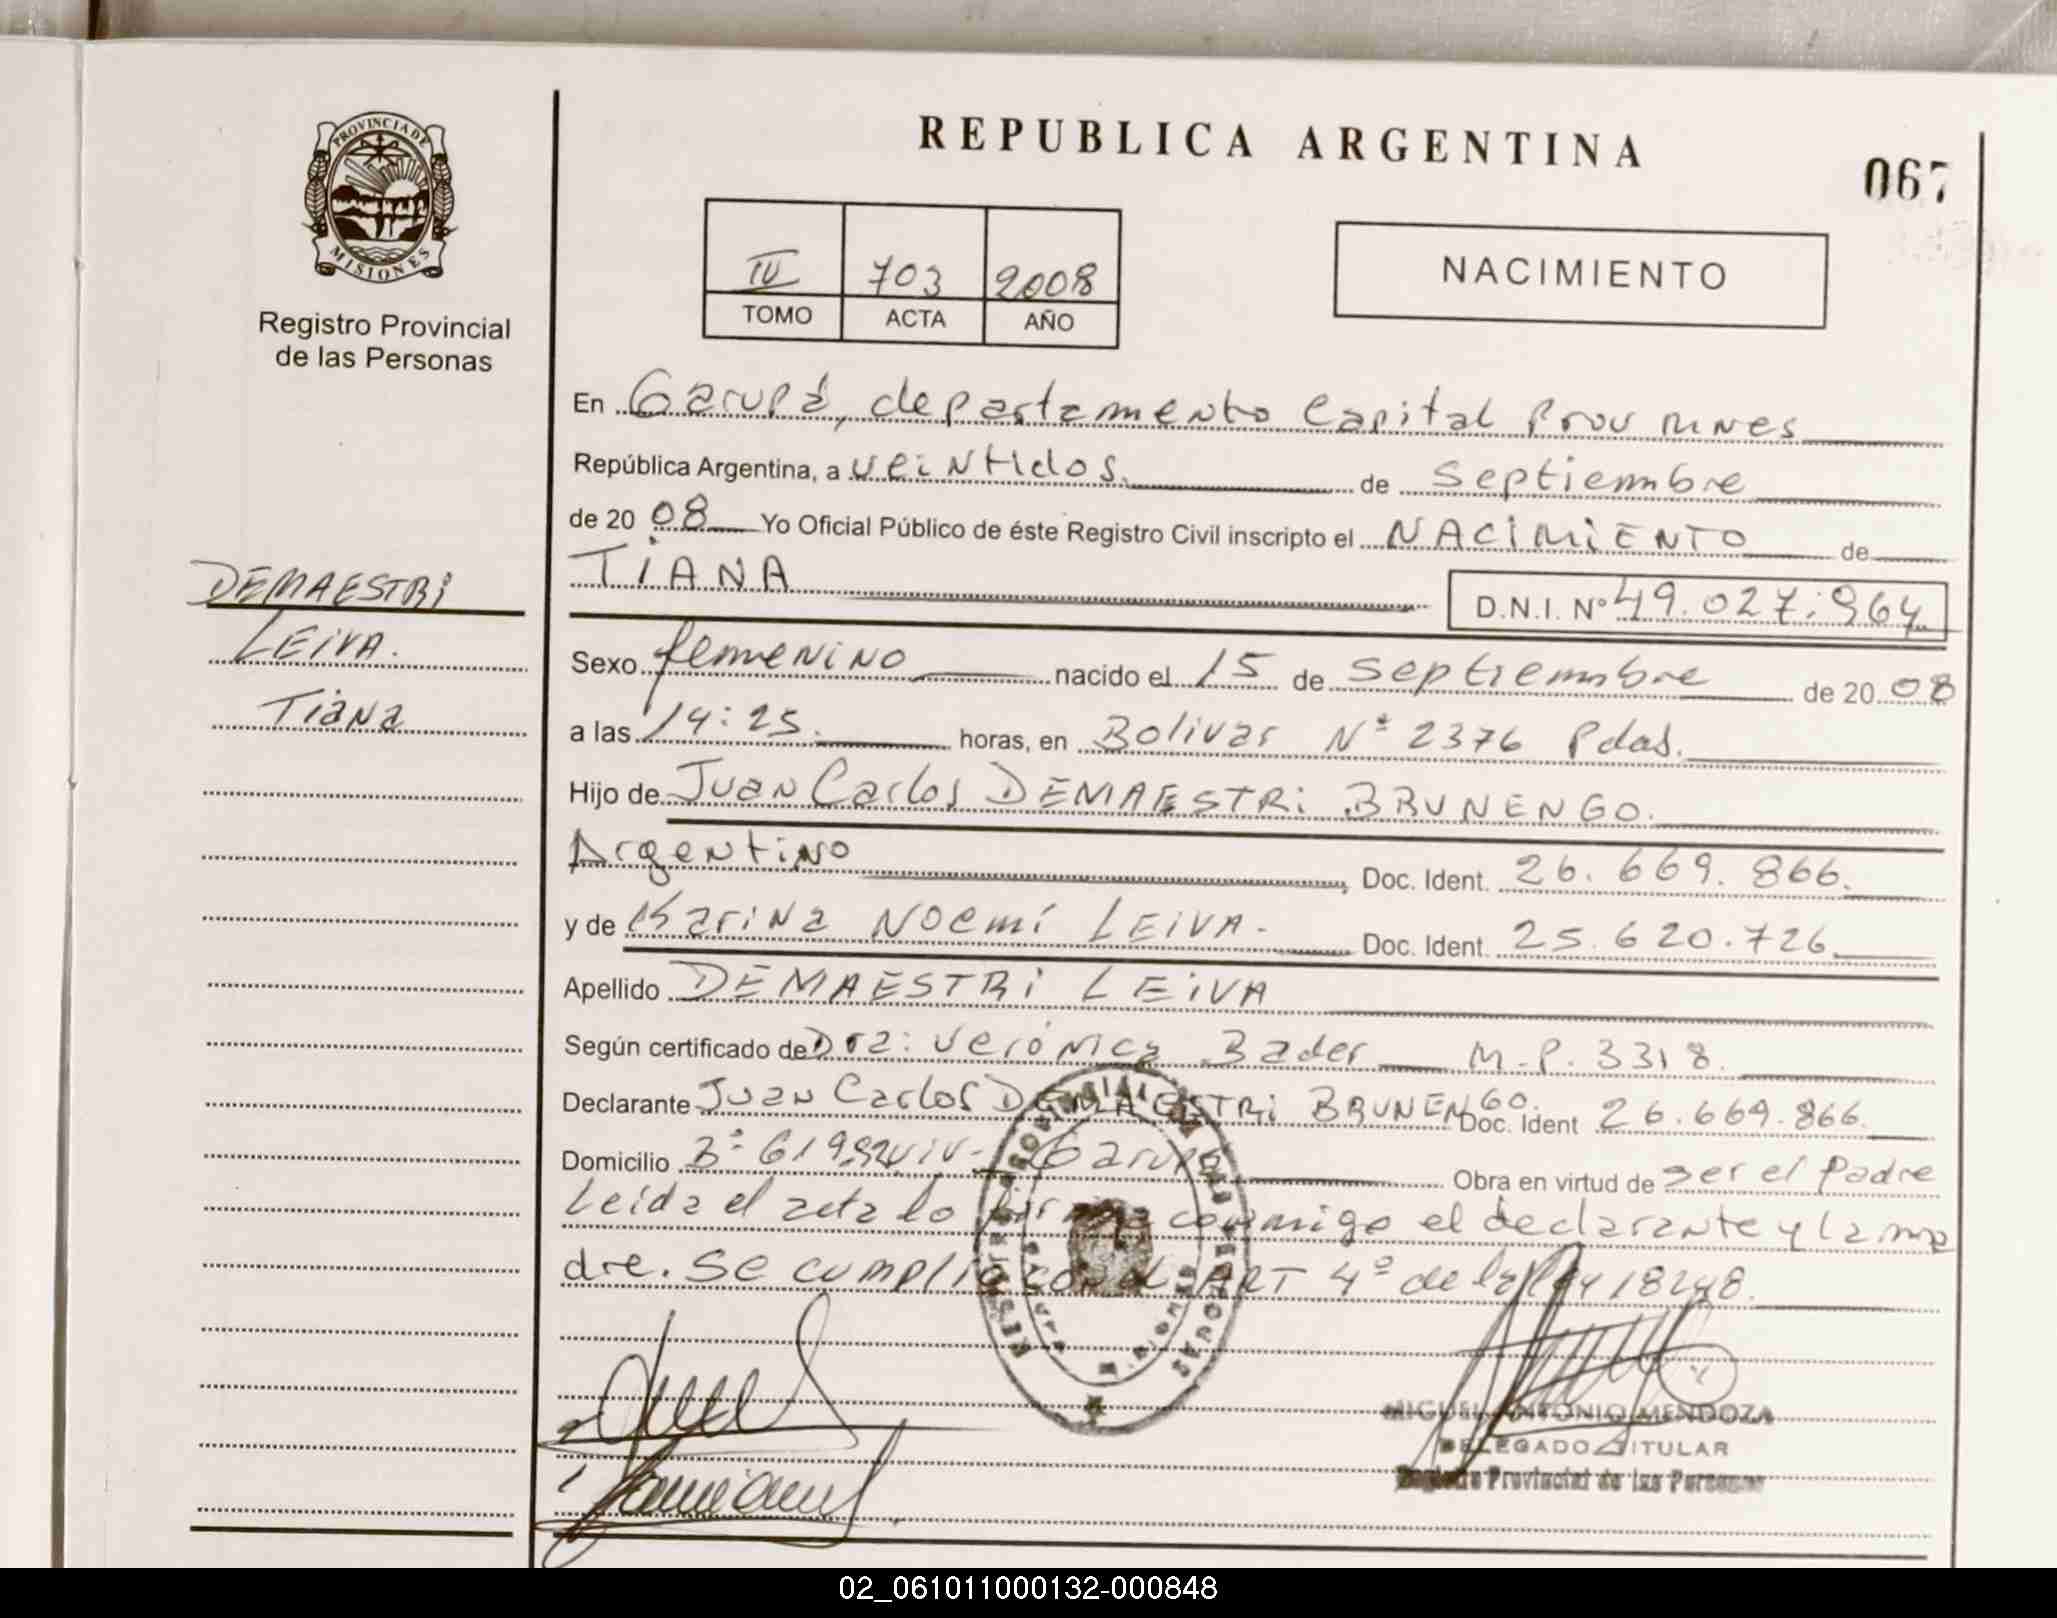 REPUBLICA ARGENTINA
067
PROVINCIA DE
MISIONES
Registro Provincial
de las Personas
IV 703 2008
TOMO ACTA AÑO
NACIMIENTO
En Garupá, departamento Capital Prov mnes
República Argentina, a veintidos. de septiembre
de 20 08 Yo Oficial Público de éste Registro Civil inscripto el NACIMIENTO de
TIANA D.N.I. Nº 49.027.964
DEMAESTRI
LEIVA.
Tiana
Sexo femenino nacido el 15 de septiembre de 20 08
a las 14:25. horas, en Bolivar Nº 2376 Pdas.
Hijo de Juan Carlos DEMAESTRI BRUNENGO.
Argentino Doc. Ident. 26.669.866.
y de Karina Noemí LEIVA. Doc. Ident. 25.620.726
Apellido DEMAESTRI LEIVA
Según certificado de Dra: Verónica Bader M.P. 3318.
Declarante Juan Carlos DEMAESTRI BRUNENGO. Doc. Ident 26.669.866.
Domicilio Bº 619 viv- Garupá Obra en virtud de ser el Padre
Leida el acta lo firma conmigo el declarante y la ma
dre. Se cumplio con el ART 4º de la Ley 18248.
MIGUEL ANTONIO MENDOZA
DELEGADO TITULAR
Registro Provincial de las Personas
02_061011000132-000848